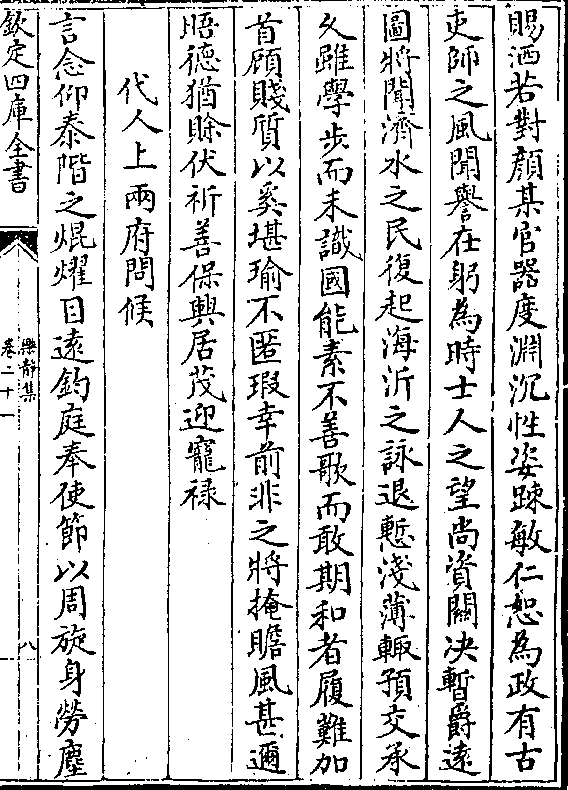 賜洒若對顔某官器度淵沉性姿踈敏仁恕為政有古
吏師之風聞譽在躬為時士人之望尚資關决暫爵逺
圖將聞濟水之民復起海沂之詠退慙淺薄輙預交承
乆雖學步而未識國能素不善歌而敢期和者履難加
首顧賤質以奚堪瑜不匿瑕幸前非之將掩瞻風甚邇
晤徳猶賖伏祈善保興居茂迎寵禄
代人上兩府問候
言念仰泰階之焜燿日逺鈞庭奉使節以周旋身勞塵
欽定四庫全書
樂静集
卷二十一
八